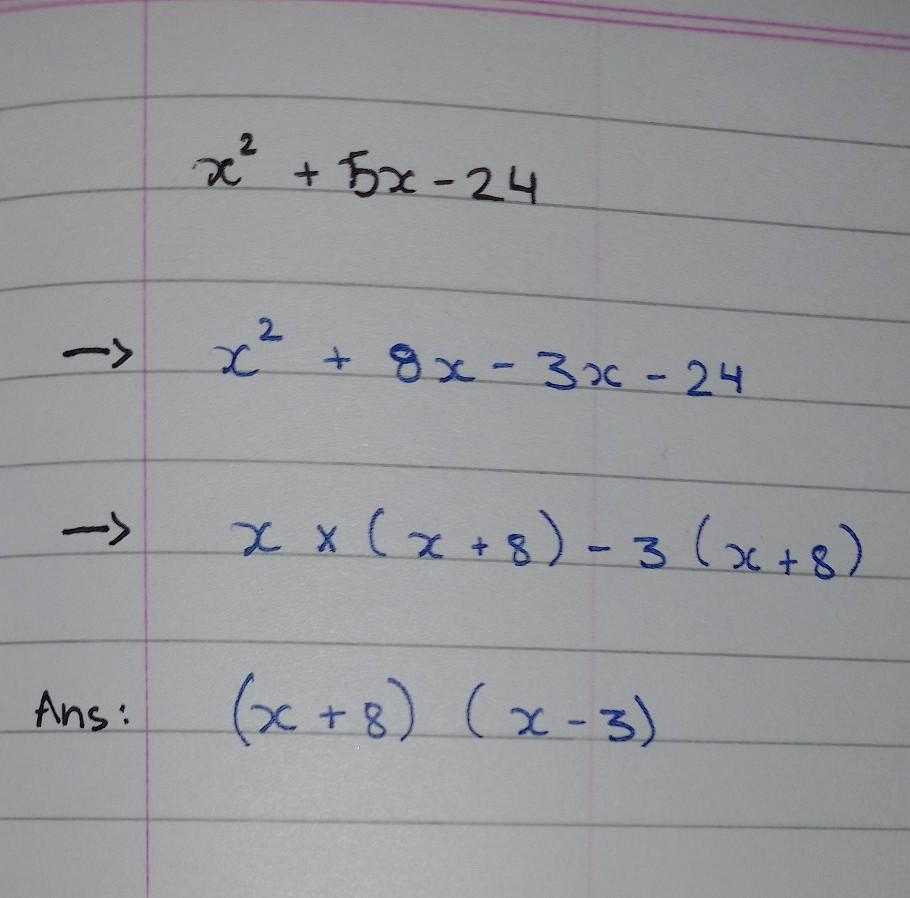 x² + 5x - 24
→ x² + 8x - 3x - 24
→ x × (x + 8) - 3 (x + 8)
Ans: (x + 8) (x - 3)